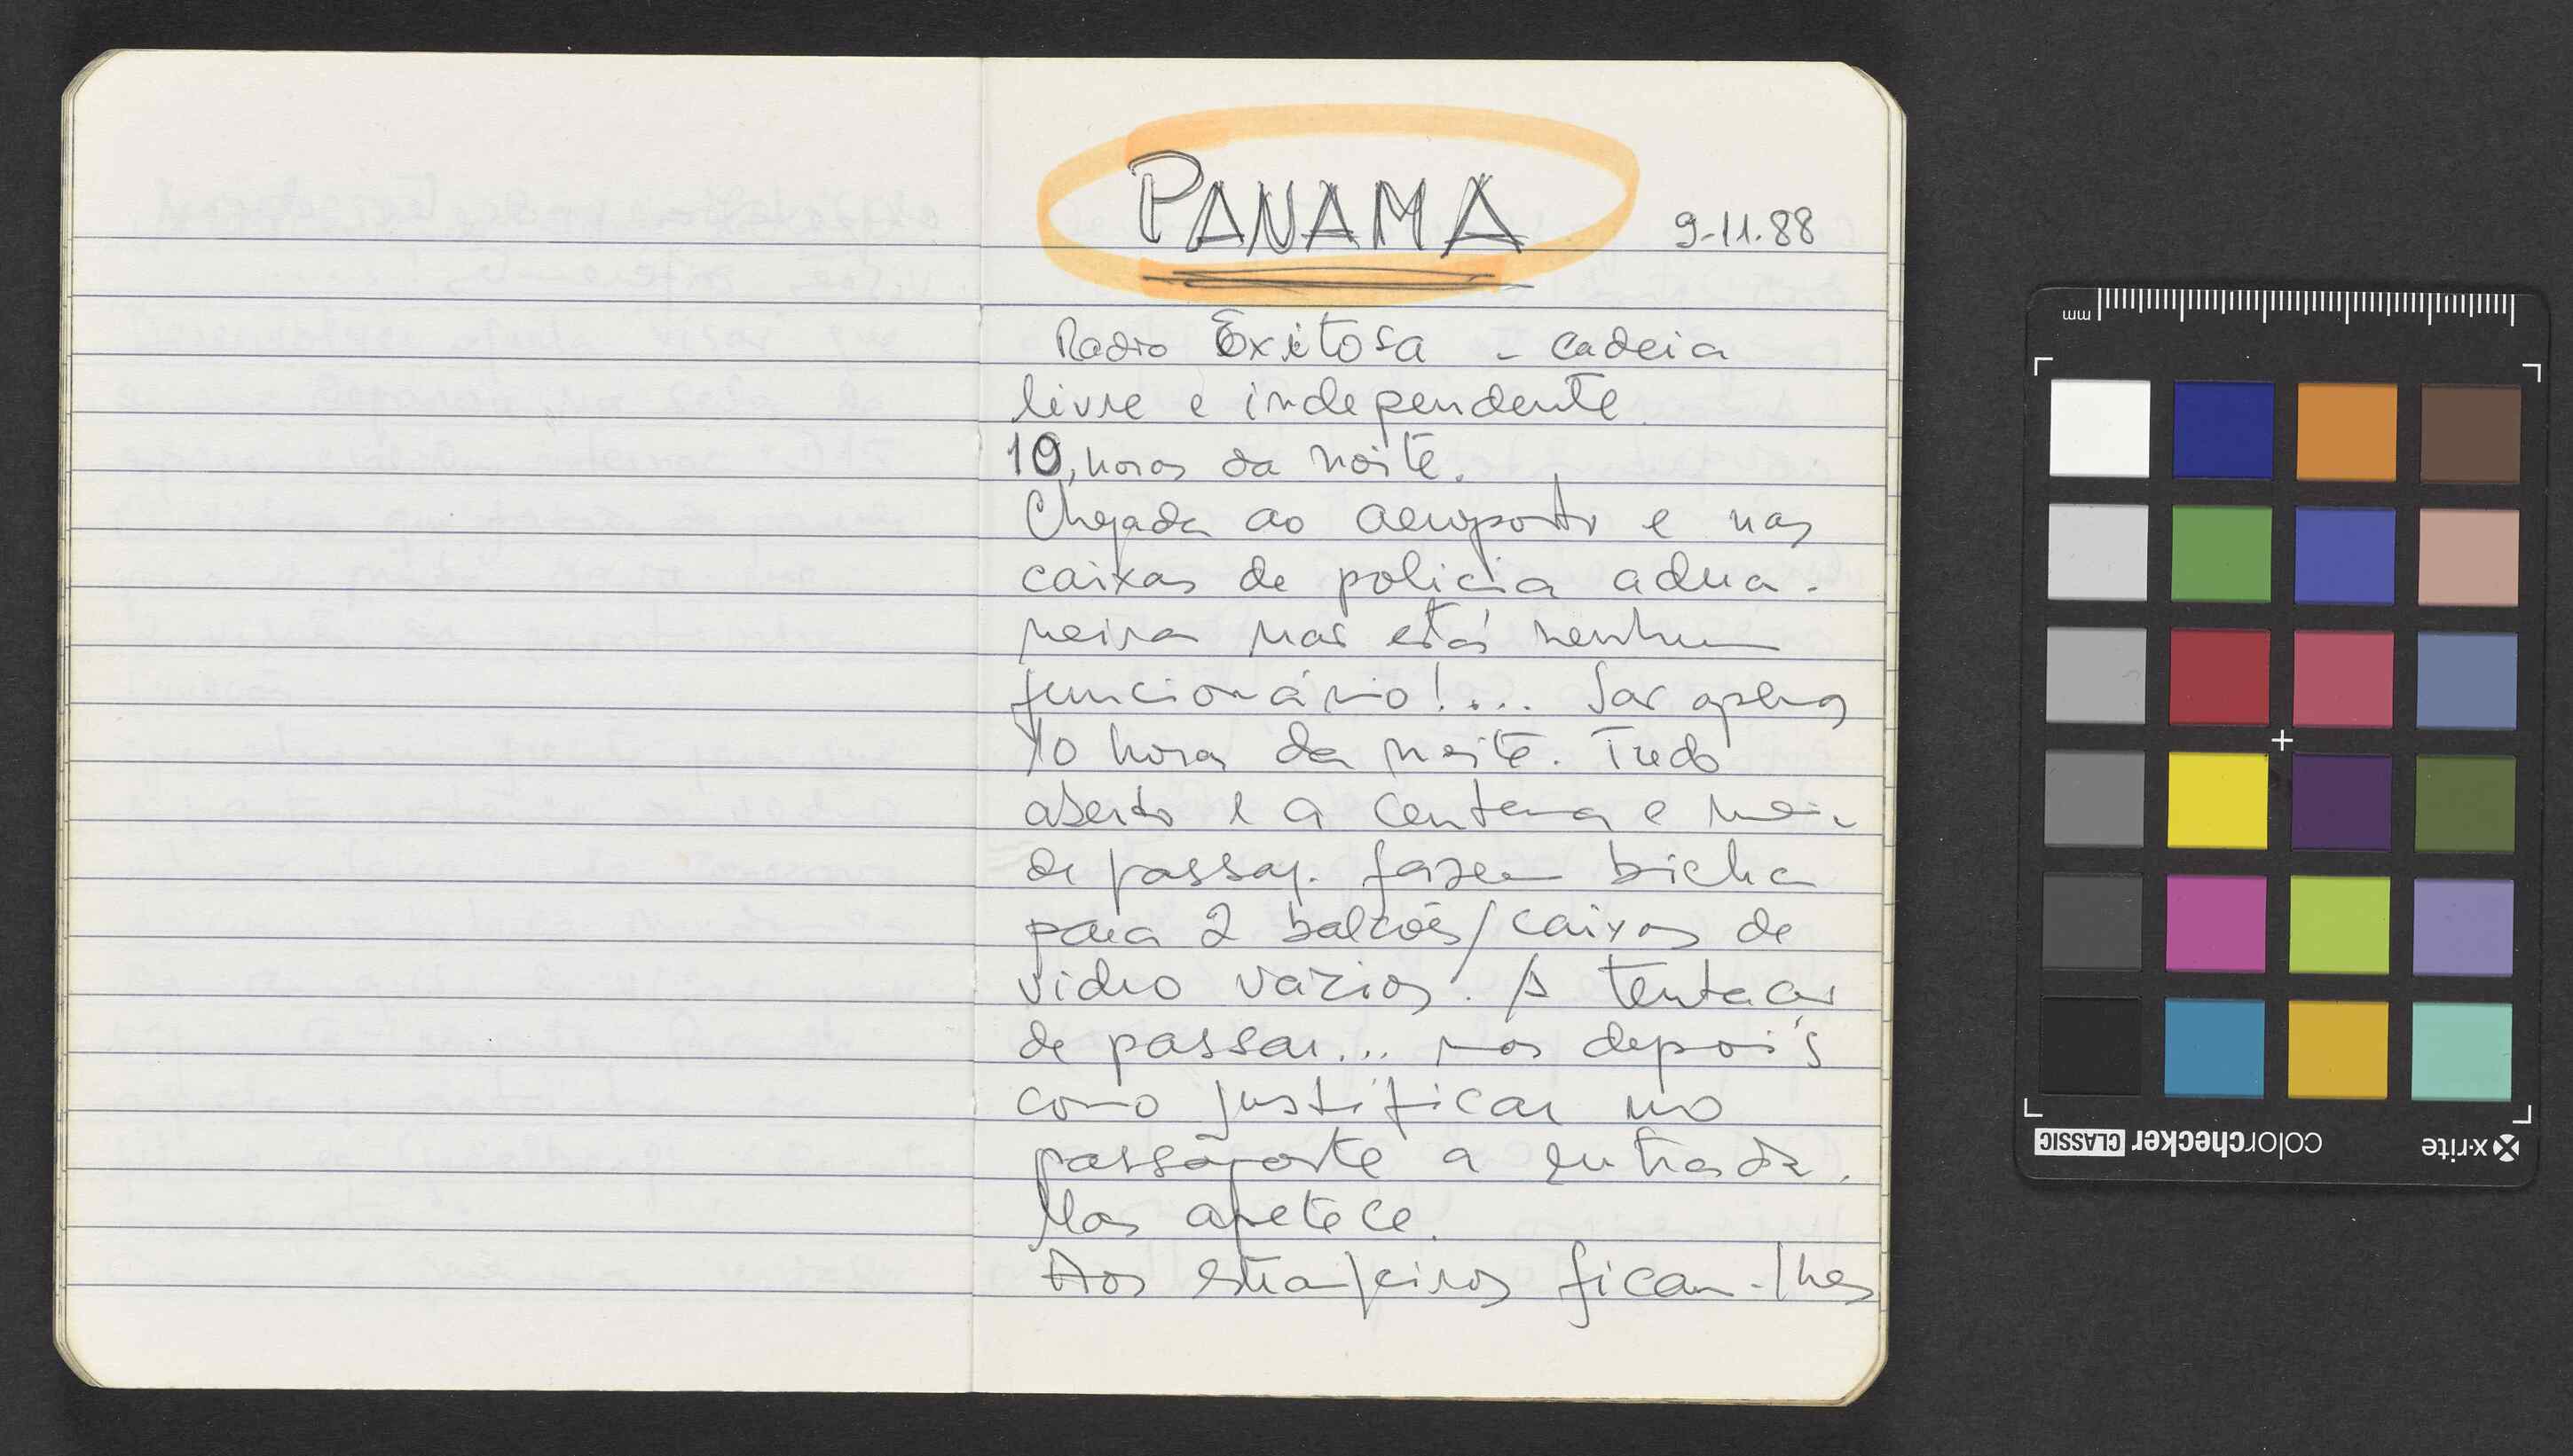 PANAMA
9-11.88
Radio Exitosa - cadeia
livre e independente
10, horas da noite.
Chegada ao aeroporto e nas
caixas de policia adua-
neira nao está nenhum
funcionário!... Sao apenas
10 horas da noite. Tudo
aberto e a centena e mei-
de passag. fazem bicha
para 2 balcões/caixas de
vidro vazios. A tentacao
de passar... mas depois
como justificar no
passaporte a entrada.
Mas apetece.
Aos estrangeiros ficam-lhes
mm
x-rite
colorchecker CLASSIC